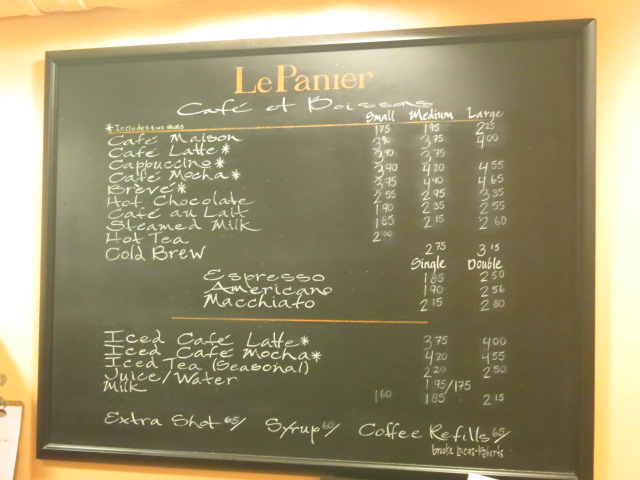 LePanier
Café et Boissons
*Includes two shots Small Medium Large
Café Maison 1 75 1 95 2 25
Café Latte* 3 40 3 75 4 00
Cappuccino* 3 40 3 75
Café Mocha* 3 90 4 20 4 55
Brèvé* 3 75 4 40 4 65
Hot Chocolate 2 55 2 95 3 35
Café au Lait 1 90 2 35 2 55
Steamed Milk 1 85 2 15 2 60
Hot Tea 2 00
Cold Brew 2 75 3 15
Single Double
Espresso 1 85 2 50
Americano 1 90 2 56
Macchiato 2 15 2 80
Iced Café Latte* 3 75 4 00
Iced Café Mocha* 4 20 4 55
Iced Tea (Seasonal) 2 20 2 50
Juice/Water 1 95/1 75
Milk 1 60 1 85 2 15
Extra Shot 65/ Syrup 60/ Coffee Refills 65/